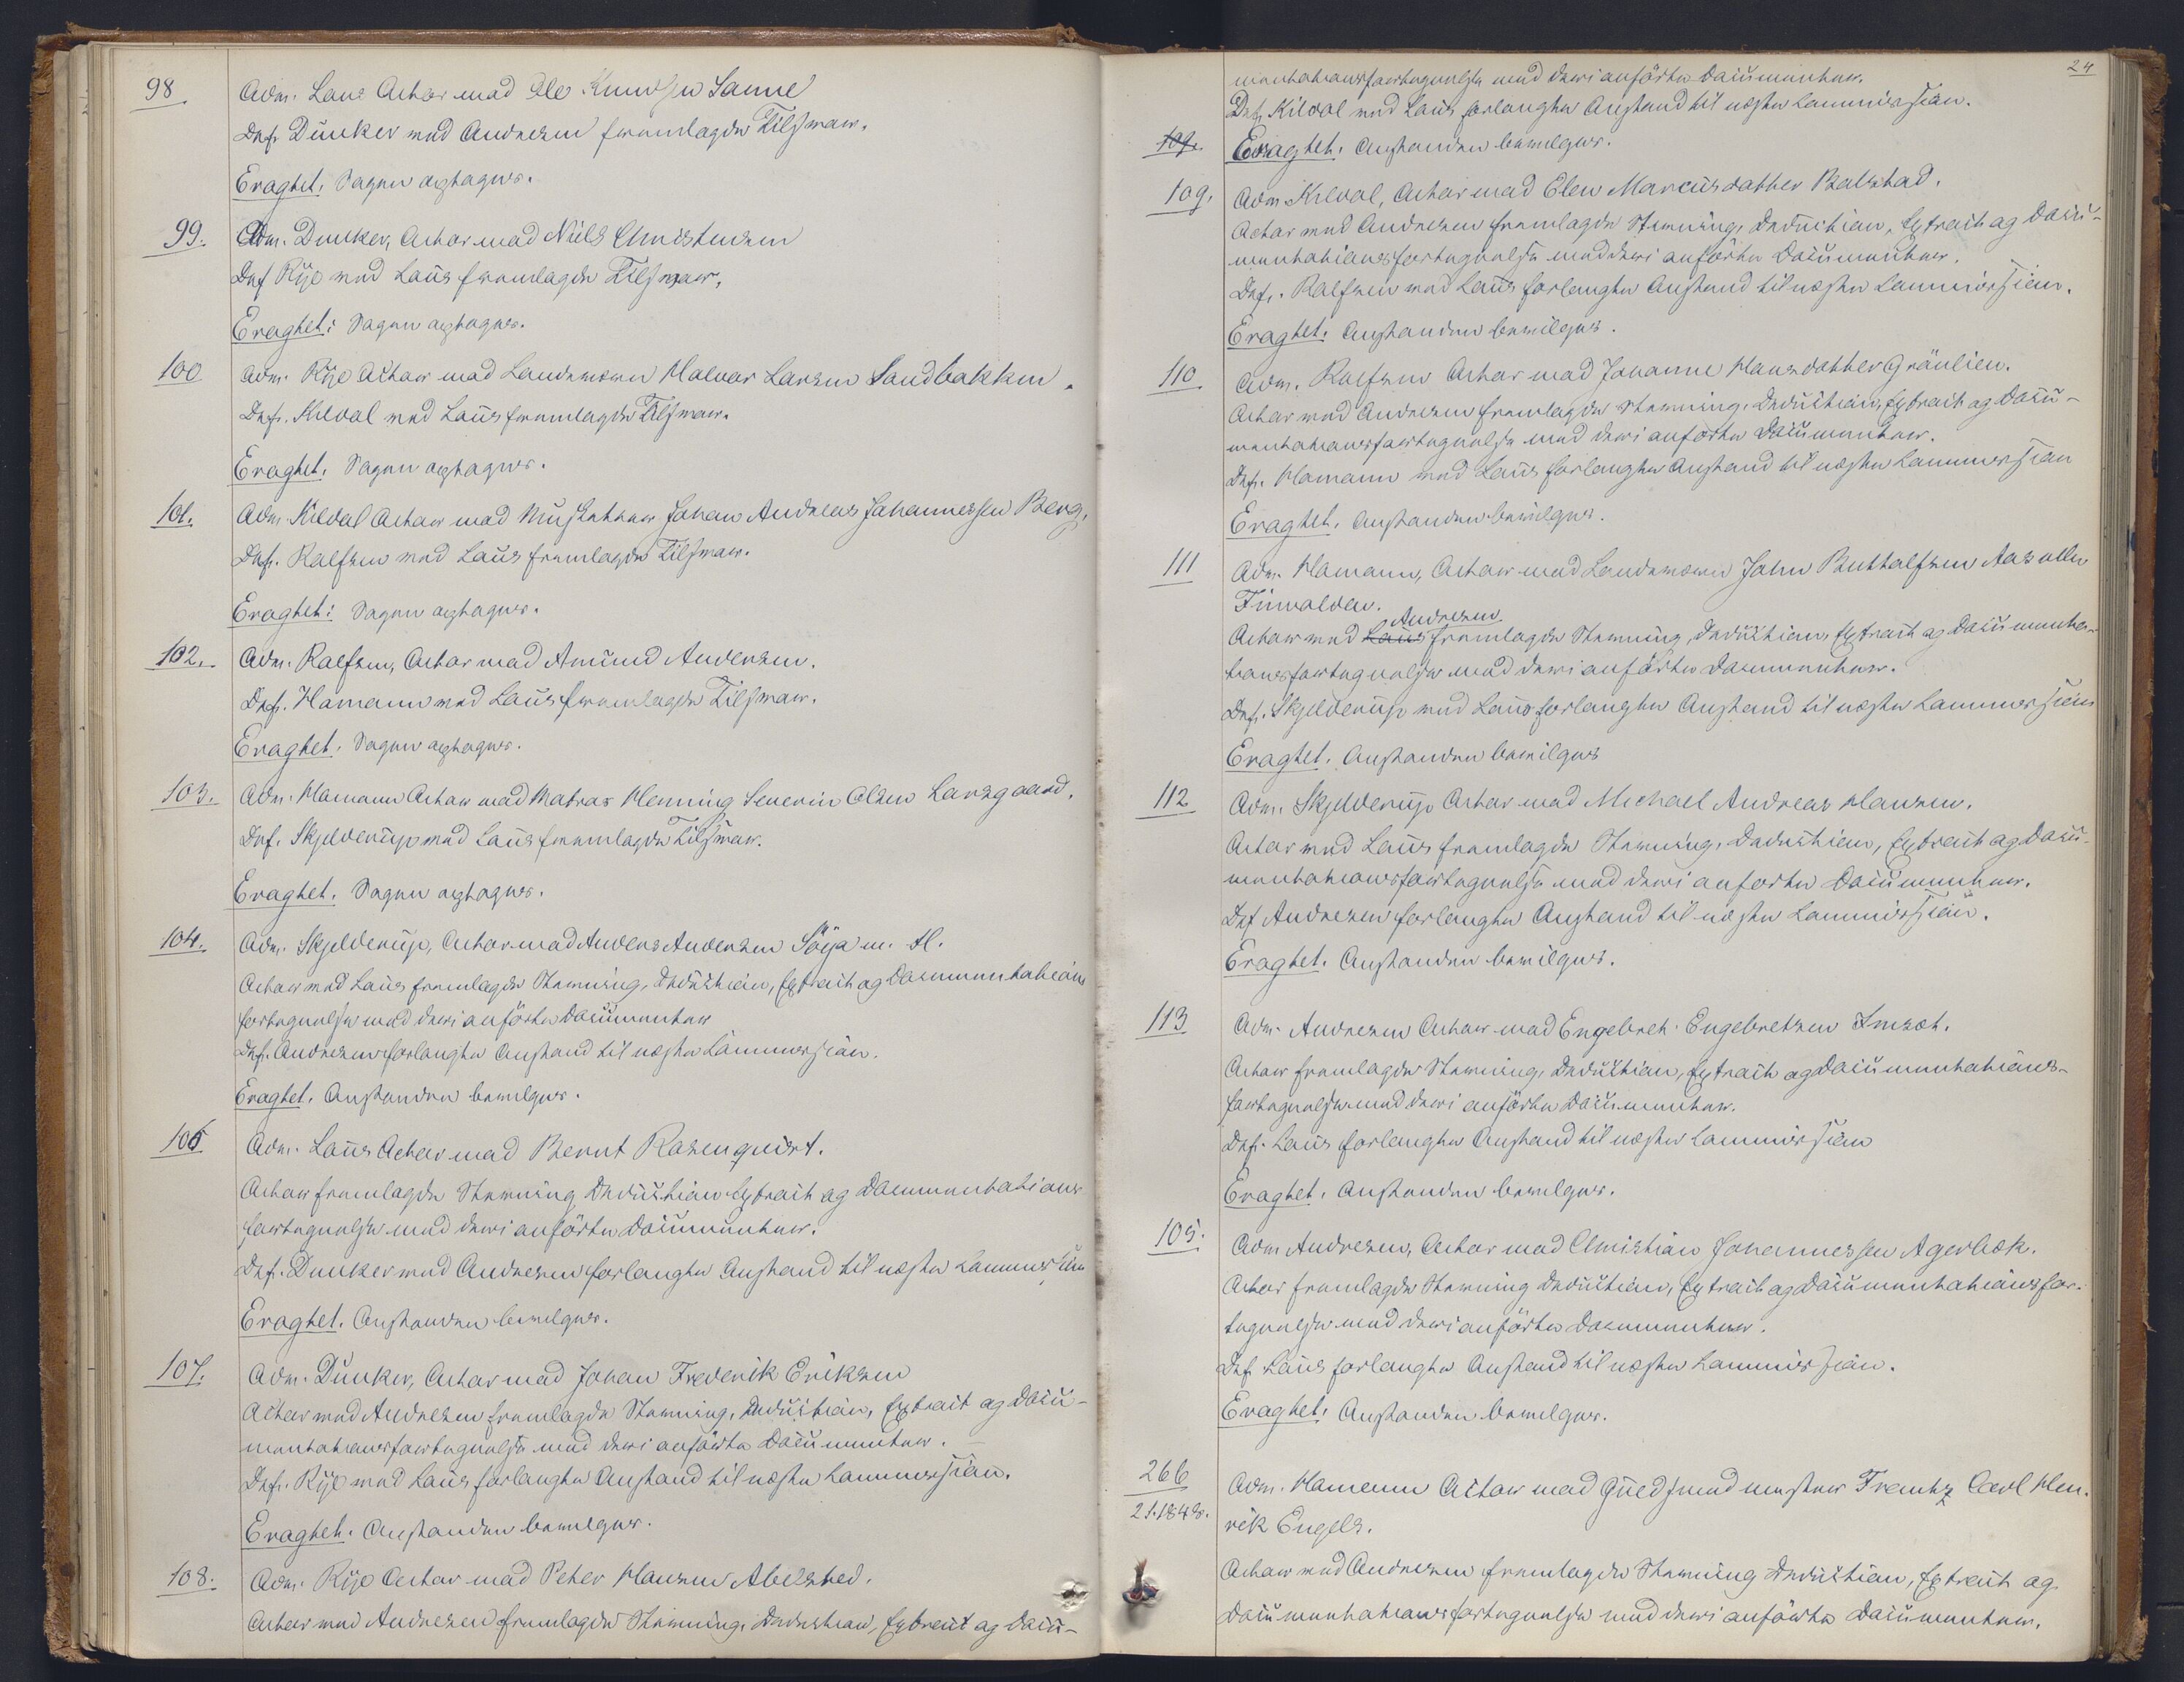 98
Adv. Laus Actor mod Ole Knudsen Sanne
Def. Dunker med Andresen fremlagde Tilsvar.
Eragtet. Sagen optages.
99.
Adv. Dunker, Actor mod Niels Christensen
Def Rye med Laus fremlagde Tilsvar.
Eragtet: Sagen optages.
100
Adv. Rye Actor mod Landværn Halvor Larsen Sandbakken.
Def. Kildal med Laus fremlagde Tilsvar.
Eragtet. Sagen optages.
101.
Adv. Kildal Actor mod Musketeer Johan Andreas Johannessen Berg.
Def. Ralfsen med Laus fremlagde Tilsvar.
Eragtet: Sagen optages.
102.
Adv. Ralfsen, Actor mod Amund Andersen.
Def. Hamann med Laus fremlagde Tilsvar.
Eragtet. Sagen optages.
103.
Adv. Hamann Actor mod Matros Henning Severin Olsen Larsgaard.
Def. Skjelderup med Laus fremlagde Tilsvar.
Eragtet. Sagen optages.
104.
Adv. Skjelderup, Actor mod Anders Andersen Söja m. fl.
Actor med Laus fremlagde Stevning, Deduction, Extract og Documentations
fortegnelse med deri anförte Documenter
Def. Andresen forlangte Anstand til næste Commission.
Eragtet. Anstanden bevilges.
106
Adv. Laus Actor mod Bernt Rosenqvist.
Actor fremlagde Stevning Deduction Extract og Documentations
fortegnelse med deri anförte Documenter.
Def. Dunker med Andresen forlangte Anstand til næste Commission
Eragtet. Anstanden bevilges.
107.
Adv. Dunker, Actor mod Johan Frederik Eriksen
Actor med Andresen fremlagde Stevning, Deduction, Extract og Docu-
mentationsfortegnelse med deri anförte Documenter.
Def. Rye med Laus forlangte Anstand til næste Commission.
Eragtet. Anstanden bevilges.
108.
Adv. Rye Actor mod Peter Hansen Abelsted.
Actor med Andresen fremlagde Stevning, Deduction, Extract og Docu-
24
mentationsfortegnelse med deri anförte Documenter.
Def. Kildal med Laus forlangte Anstand til næste Commission.
109.
Eragtet. Anstanden bevilges.
109.
Adv. Kildal, Actor mod Elen Marcusdatter Balstad.
Actor med Andresen fremlagde Stevning, Deduction, Extract og Docu-
mentationsfortegnelse med deri anförte Documenter.
Def. Ralfsen med Laus forlangte Anstand til næste Commission.
Eragtet. Anstanden bevilges.
110
Adv. Ralfsen Actor mod Johanne Hansdatter Grönlien.
Actor med Andresen fremlagde Stevning, Deduction, Extract og Docu-
mentationsfortegnelse med deri anförte Documenter.
Def. Hamann med Laus forlangte Anstand til næste Commission
Eragtet. Anstanden bevilges.
111
Adv. Hamann, Actor mod Landværn John Botholfsen Aas eller
Andresen
Actor med Laus fremlagde Stevning, Deduction, Extract og Documenta-
tionsfortegnelse med deri anförte Documenter.
Def. Skjelderup med Laus forlangte Anstand til næste Commission
Eragtet. Anstanden bevilges
112
Adv. Skjelderup Actor mod Michael Andreas Hansen.
Actor med Laus fremlagde Stevning, Deduction, Extract og Docu-
mentationsfortegnelse med deri anförte Documenter.
Def Andresen forlangte Anstand til næste Commission.
Eragtet. Anstanden bevilges.
113
Adv. Andresen Actor mod Engebret Engebretsen
Actor fremlagde Stevning, Deduction, Extract og Documentations-
fortegnelse med deri anförte Documenter.
Def. Laus forlangte Anstand til næste Commission
Eragtet. Anstanden bevilges.
105.
Adv Andresen, Actor mod Christian Johannessen Agerbæk.
Actor fremlagde Stevning Deduction, Extract og Documentationsfor-
tegnelse med deri anförte Documenter.
Def. Laus forlangte Anstand til næste Commission.
Eragtet. Anstanden bevilges.
266
21.1848.
Adv. Hamann Actor mod Guldsmedmester Frantz Carl Hen-
rik Engels.
Actor med Andresen fremlagde Stevning Deduction, Extract og
Documentationsfortegnelse med deri anförte Documenter.